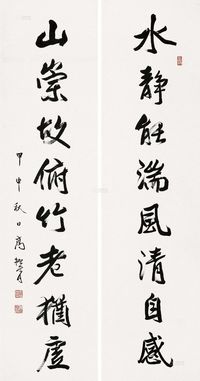 水静能湍風清自感
山崇故俯竹老猶虛
甲申秋日